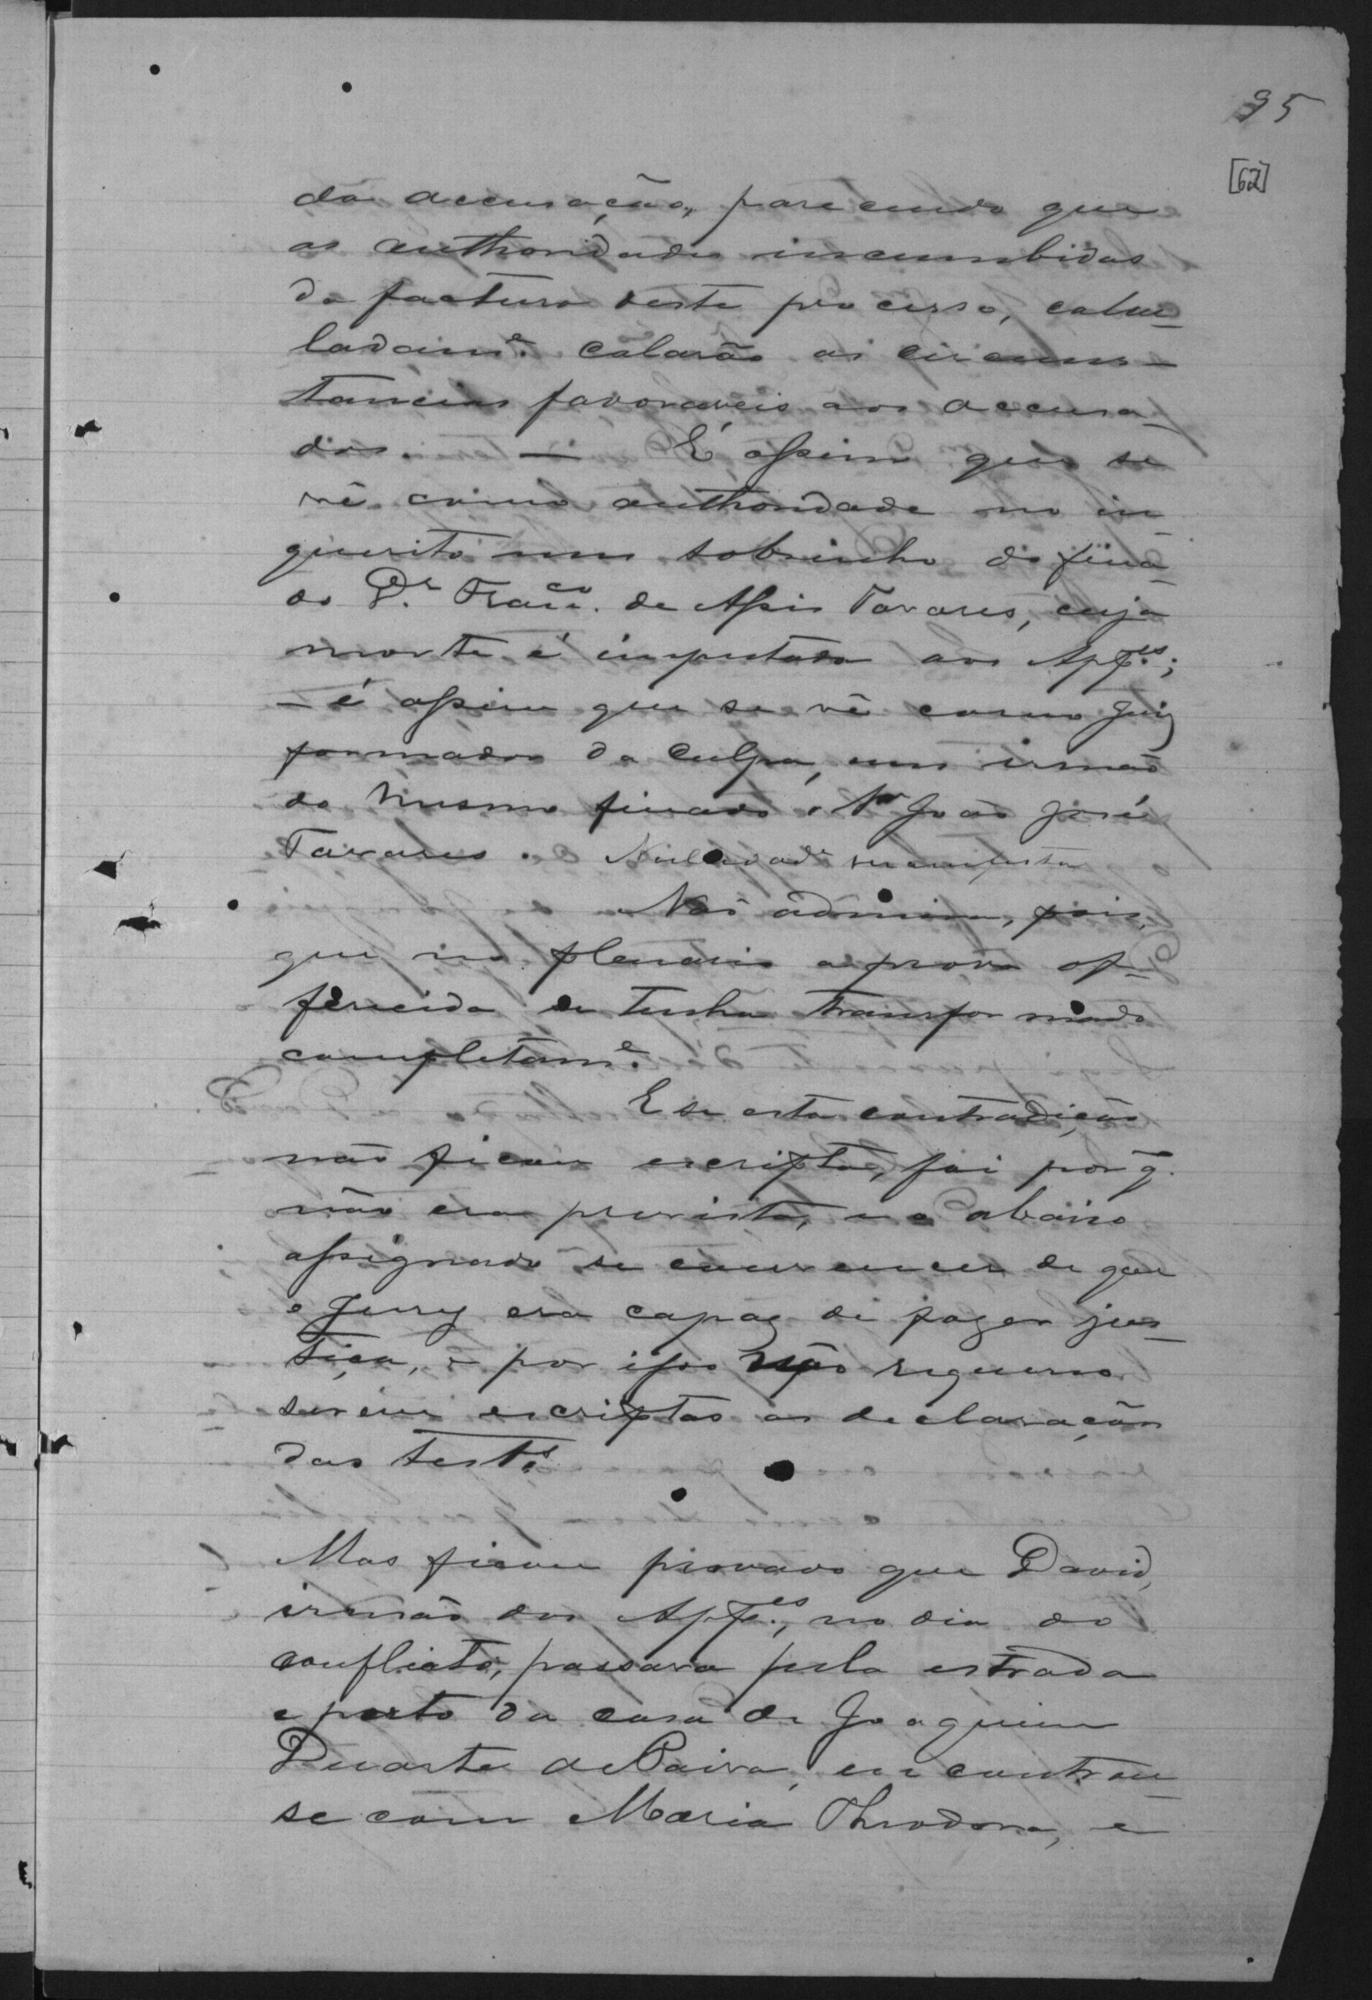 95
[62]
da accusação, parecendo que
as authoridades incumbidas
da factura deste processo, calcu-
ladam.e calarão as circums-
tancias favoraveis aos accusa-
dos. — É assim que se
vê como authoridade no in-
querito um sobrinho do fina-
do Dr. Franco. de Assis Tavares, cuja
morte é imputada aos App.es;
— é assim que se vê como Juiz
formador da culpa, um irmão
do mesmo finado, o Sr João José
Tavares. Nullidade manifesta
Não admira, pois,
que no plenario a prova of-
ferecida se tenha transformado
completam.e
E se esta contradicção
não ficou escripta, foi por q.
não era prevista, e o abaixo
assignado se convencer de que
o Jury era capaz de fazer jus-
tiça, e por isso não requereo
serem escriptas as declarações
das test.s
Mas ficou provado que David,
irmão dos App.es, no dia do
conflicto, passara pela estrada
e perto da casa de Joaquim
Duarte de Paiva, encontrou-
se com Maria Theodora, e